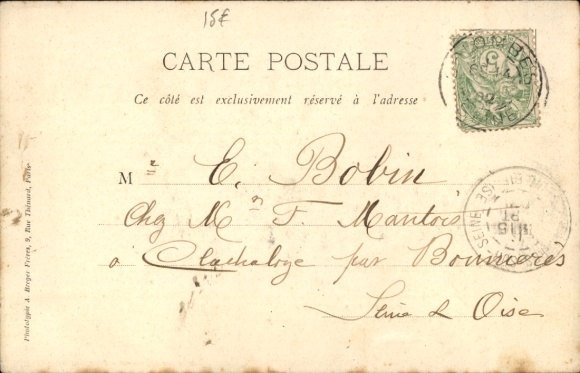 15€
CARTE POSTALE
Ce côté est exclusivement réservé à l'adresse
M E. Bobin
Chez M F. Mantois
à Clachaloze par Bonnières
Seine & Oise
Phototypie A. Breger Frères, 9, Rue Thénard, Paris
COLOMBES
SEINE
5